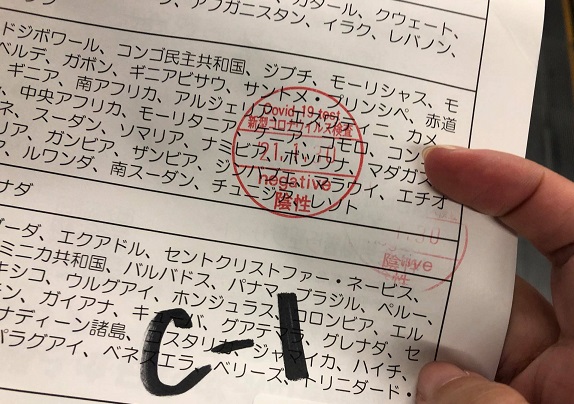 カタール、クウェート、
アフガニスタン、イラク、レバノン、
ドジボワール、コンゴ民主共和国、ジブチ、モーリシャス、モ
ベルデ、ガボン、ギニアビサウ、サントメ・プリンシペ、赤道
ギニア、南アフリカ、アルジェリア、エスワティニ、カメ
、中央アフリカ、モーリタニア、コモロ、コン
ネ、スーダン、ソマリア、ナミビア、ボツワナ、マダガス
リア、ガンビア、ザンビア、ジンバブエ、マラウィ、エチオ
ア、ルワンダ、南スーダン、チュニジア、レソト
Covid-19 test
新型コロナウイルス検査
negative
陰性
陰性
ナダ
ーダ、エクアドル、セントクリストファー・ネービス、
ミニカ共和国、バルバドス、パナマ、ブラジル、ペルー、
キシコ、ウルグアイ、ホンジュラス、コロンビア、エル
ン、ガイアナ、キューバ、グアテマラ、グレナダ、セ
ナディーン諸島、コスタリカ、ジャマイカ、ハイチ、
パラグアイ、ベネズエラ、ベリーズ、トリニダード・
C-1